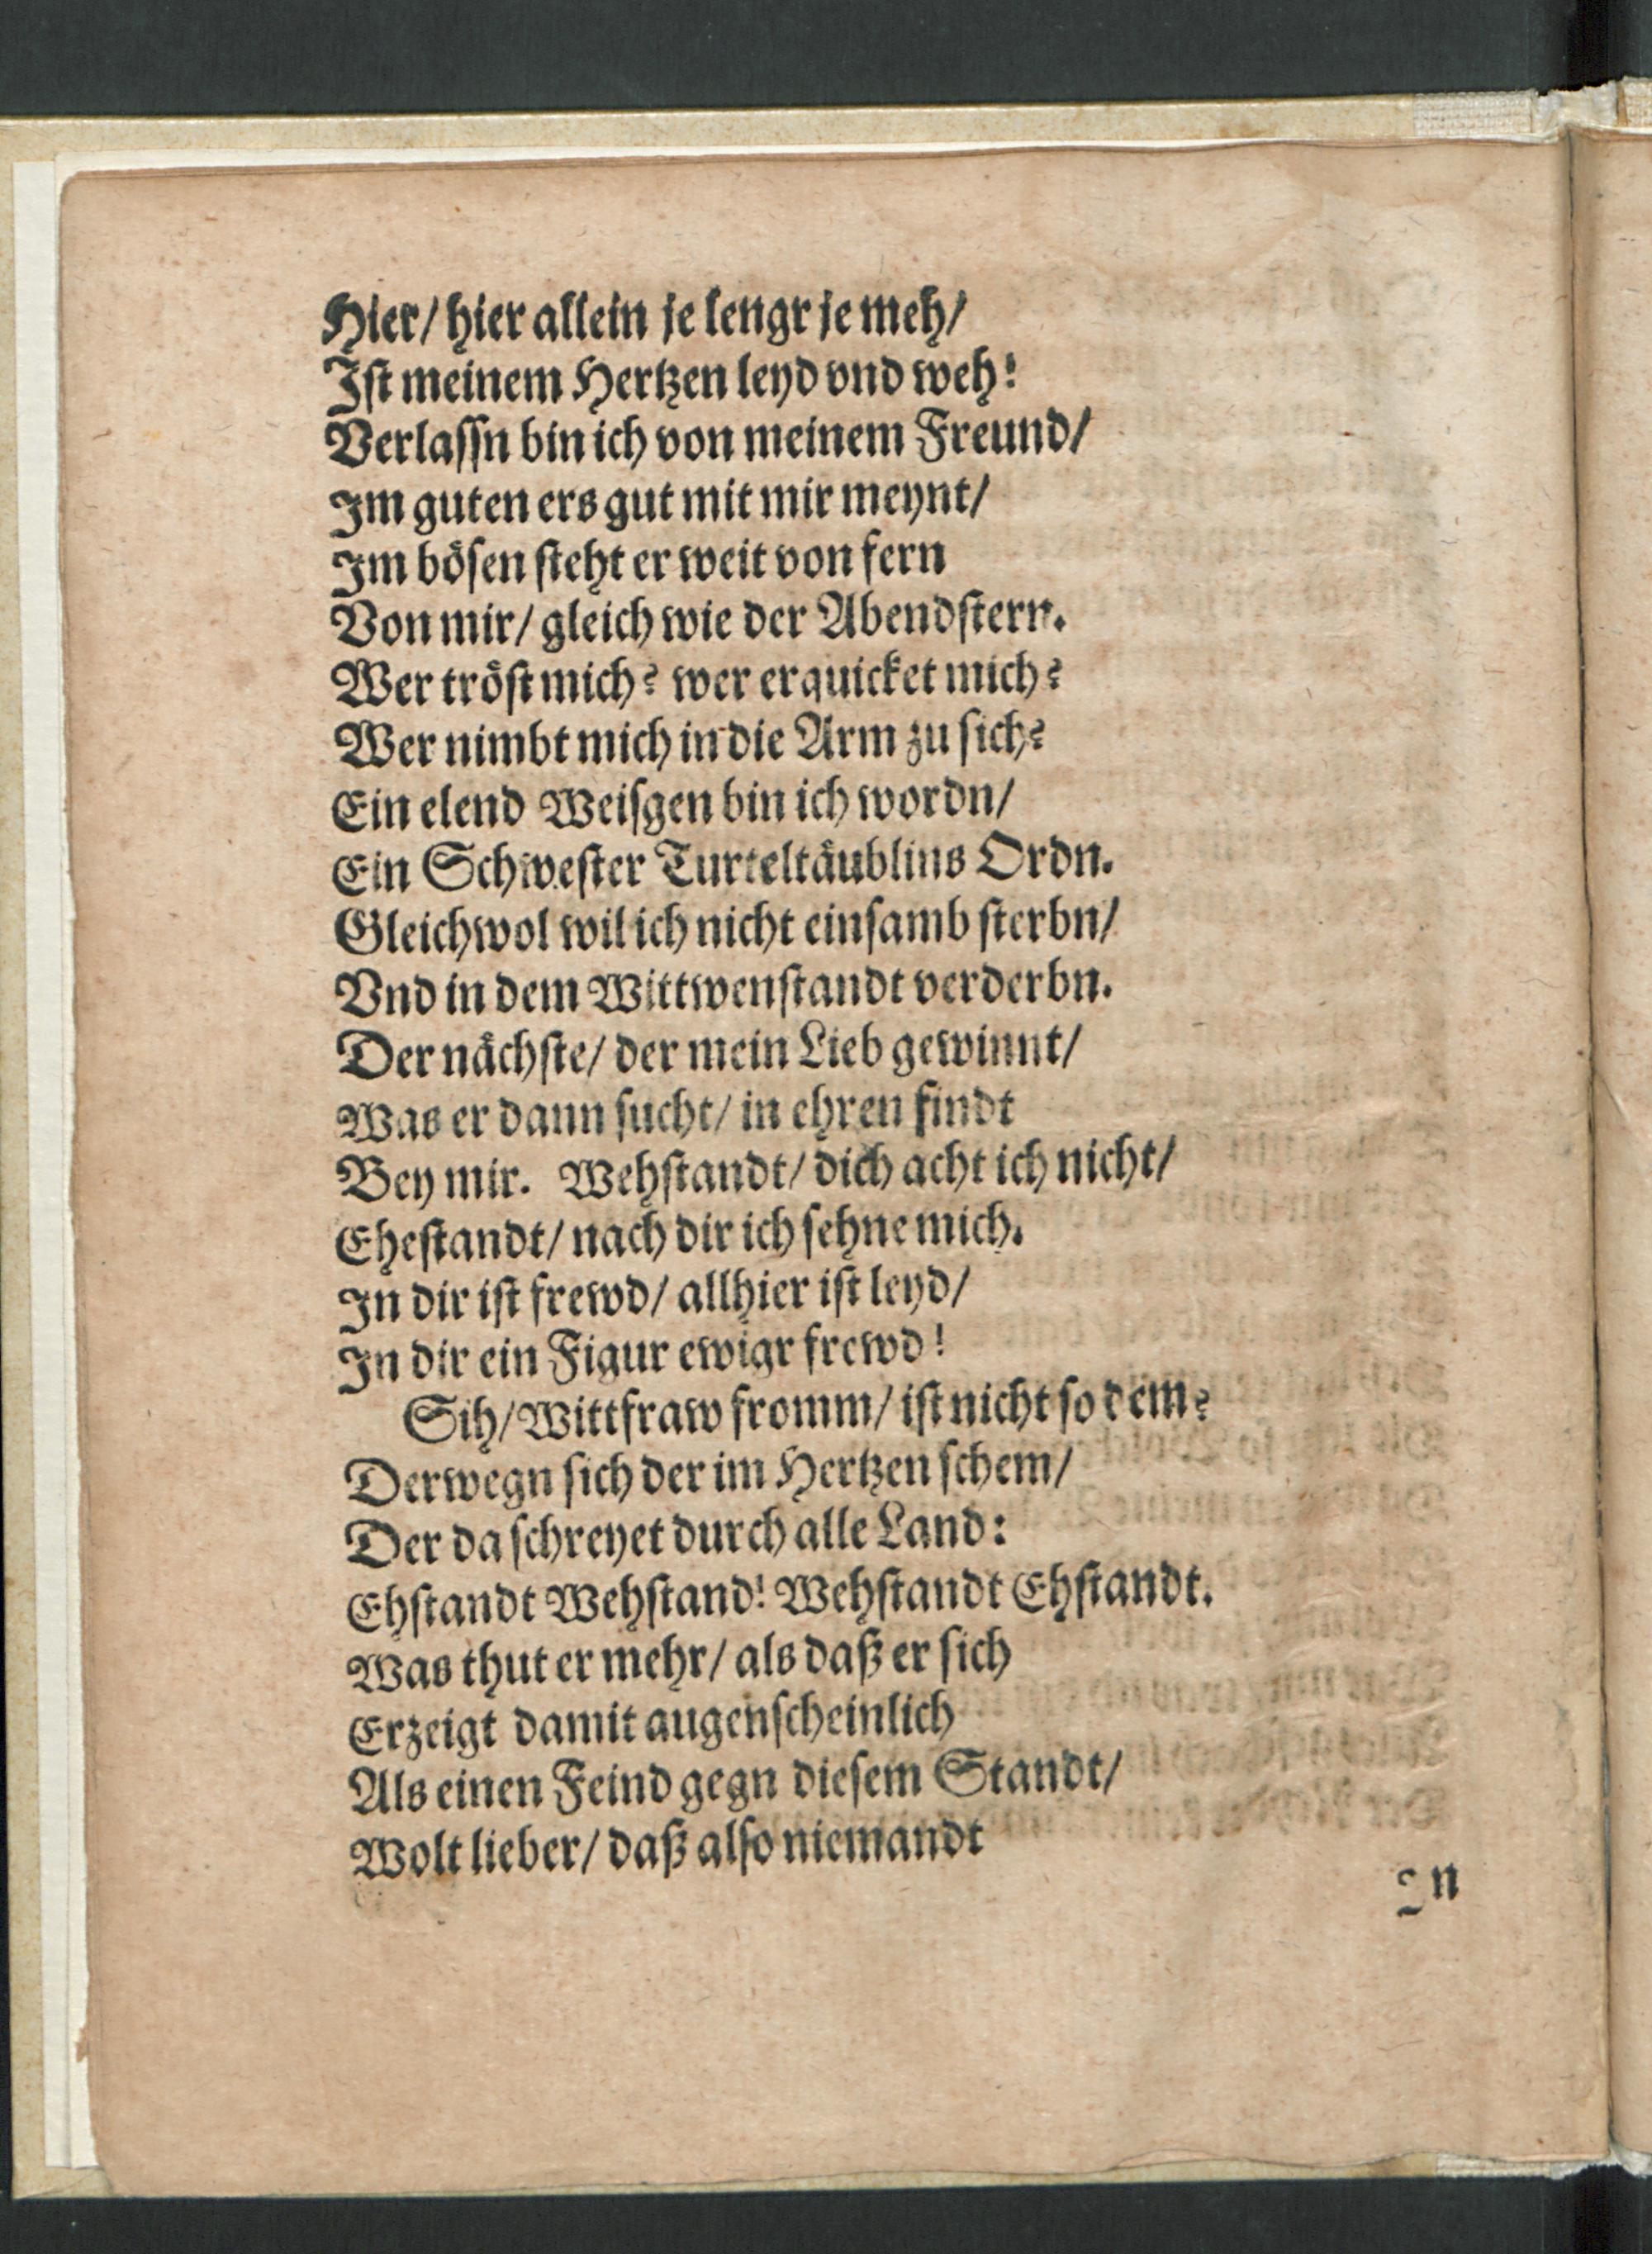 Hier/ hier allein je lengr je meh/
Iſt meinem Hertzen leyd vnd weh!
Verlaſſn bin ich von meinem Freund/
Im guten ers gut mit mir meynt/
Im böſen ſteht er weit von fern
Von mir/ gleich wie der Abendſtern.
Wer tröſt mich? wer erquicket mich?
Wer nimbt mich in die Arm zu ſich?
Ein elend Weiſgen bin ich wordn/
Ein Schweſter Turteltäublins Ordn.
Gleichwol wil ich nicht einſamb ſterbn/
Vnd in dem Wittwenſtandt verderbn.
Der nächſte/ der mein Lieb gewinnt/
Was er dann ſucht/ in ehren findt
Bey mir. Wehſtandt/ dich acht ich nicht/
Eheſtandt/ nach dir ich ſehne mich.
In dir iſt frewd/ allhier iſt leyd/
In dir ein Figur ewigr frewd!
Sih/ Wittfraw fromm/ iſt nicht ſo dem?
Derwegn ſich der im Hertzen ſchem/
Der da ſchreyet durch alle Land:
Ehſtandt Wehſtand! Wehſtandt Ehſtandt.
Was thut er mehr/ als daß er ſich
Erzeigt damit augenſcheinlich
Als einen Feind gegn dieſem Standt/
Wolt lieber/ daß alſo niemandt
In